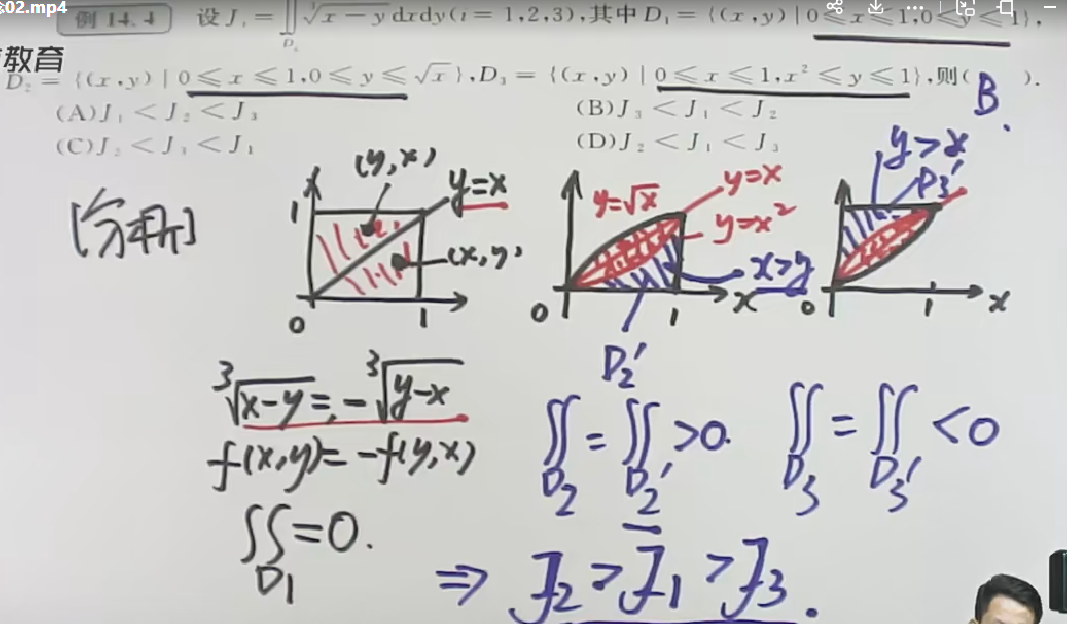 02.mp4
例 14.4 设 J₁ = ∬_{D₁} ∛(x − y) dxdy (i = 1,2,3), 其中 D₁ = {(x,y) | 0 ≤ x ≤ 1, 0 ≤ y ≤ 1},
教育
D₂ = {(x,y) | 0 ≤ x ≤ 1, 0 ≤ y ≤ √x}, D₃ = {(x,y) | 0 ≤ x ≤ 1, x² ≤ y ≤ 1}, 则( B ).
(A) J₁ < J₂ < J₃
(B) J₃ < J₁ < J₂
(C) J₂ < J₃ < J₁
(D) J₂ < J₁ < J₃
[分析]
(y,x)
y=x
1
(x,y)
0
1
y=√x
y=x
y=x²
x>y
0
1
x
D₂'
y>x
D₃'
0
1
x
∛(x−y) = −∛(y−x)
f(x,y) = −f(y,x)
∬_{D₁} = 0.
∬_{D₂} = ∬_{D₂'} > 0.
∬_{D₃} = ∬_{D₃'} < 0
⇒ J₂ > J₁ > J₃.